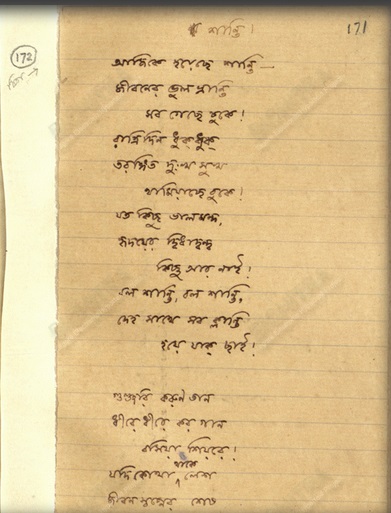 শান্তি!
171
172
আজিকে হয়েছে শান্তি —
জীবনের ভুল ভ্রান্তি
সব গেছে চুকে!
রাত্রি দিন ধুক্ ধুক্
তরঙ্গিত দুঃখ সুখ
থামিয়াছে বুকে!
যত কিছু ভালমন্দ,
হৃদয়ের দ্বিধাদ্বন্দ্ব
কিছু আর নাই!
বল শান্তি, বল শান্তি,
দেহ সাথে সব ক্লান্তি
হয়ে যাক্ ছাই!
গুঞ্জরি করুণ তান
ধীরে ধীরে কর গান
বসিয়া শিয়রে!
যদি কোথা থাকে লেশ
জীবন স্বপ্নের শেষ